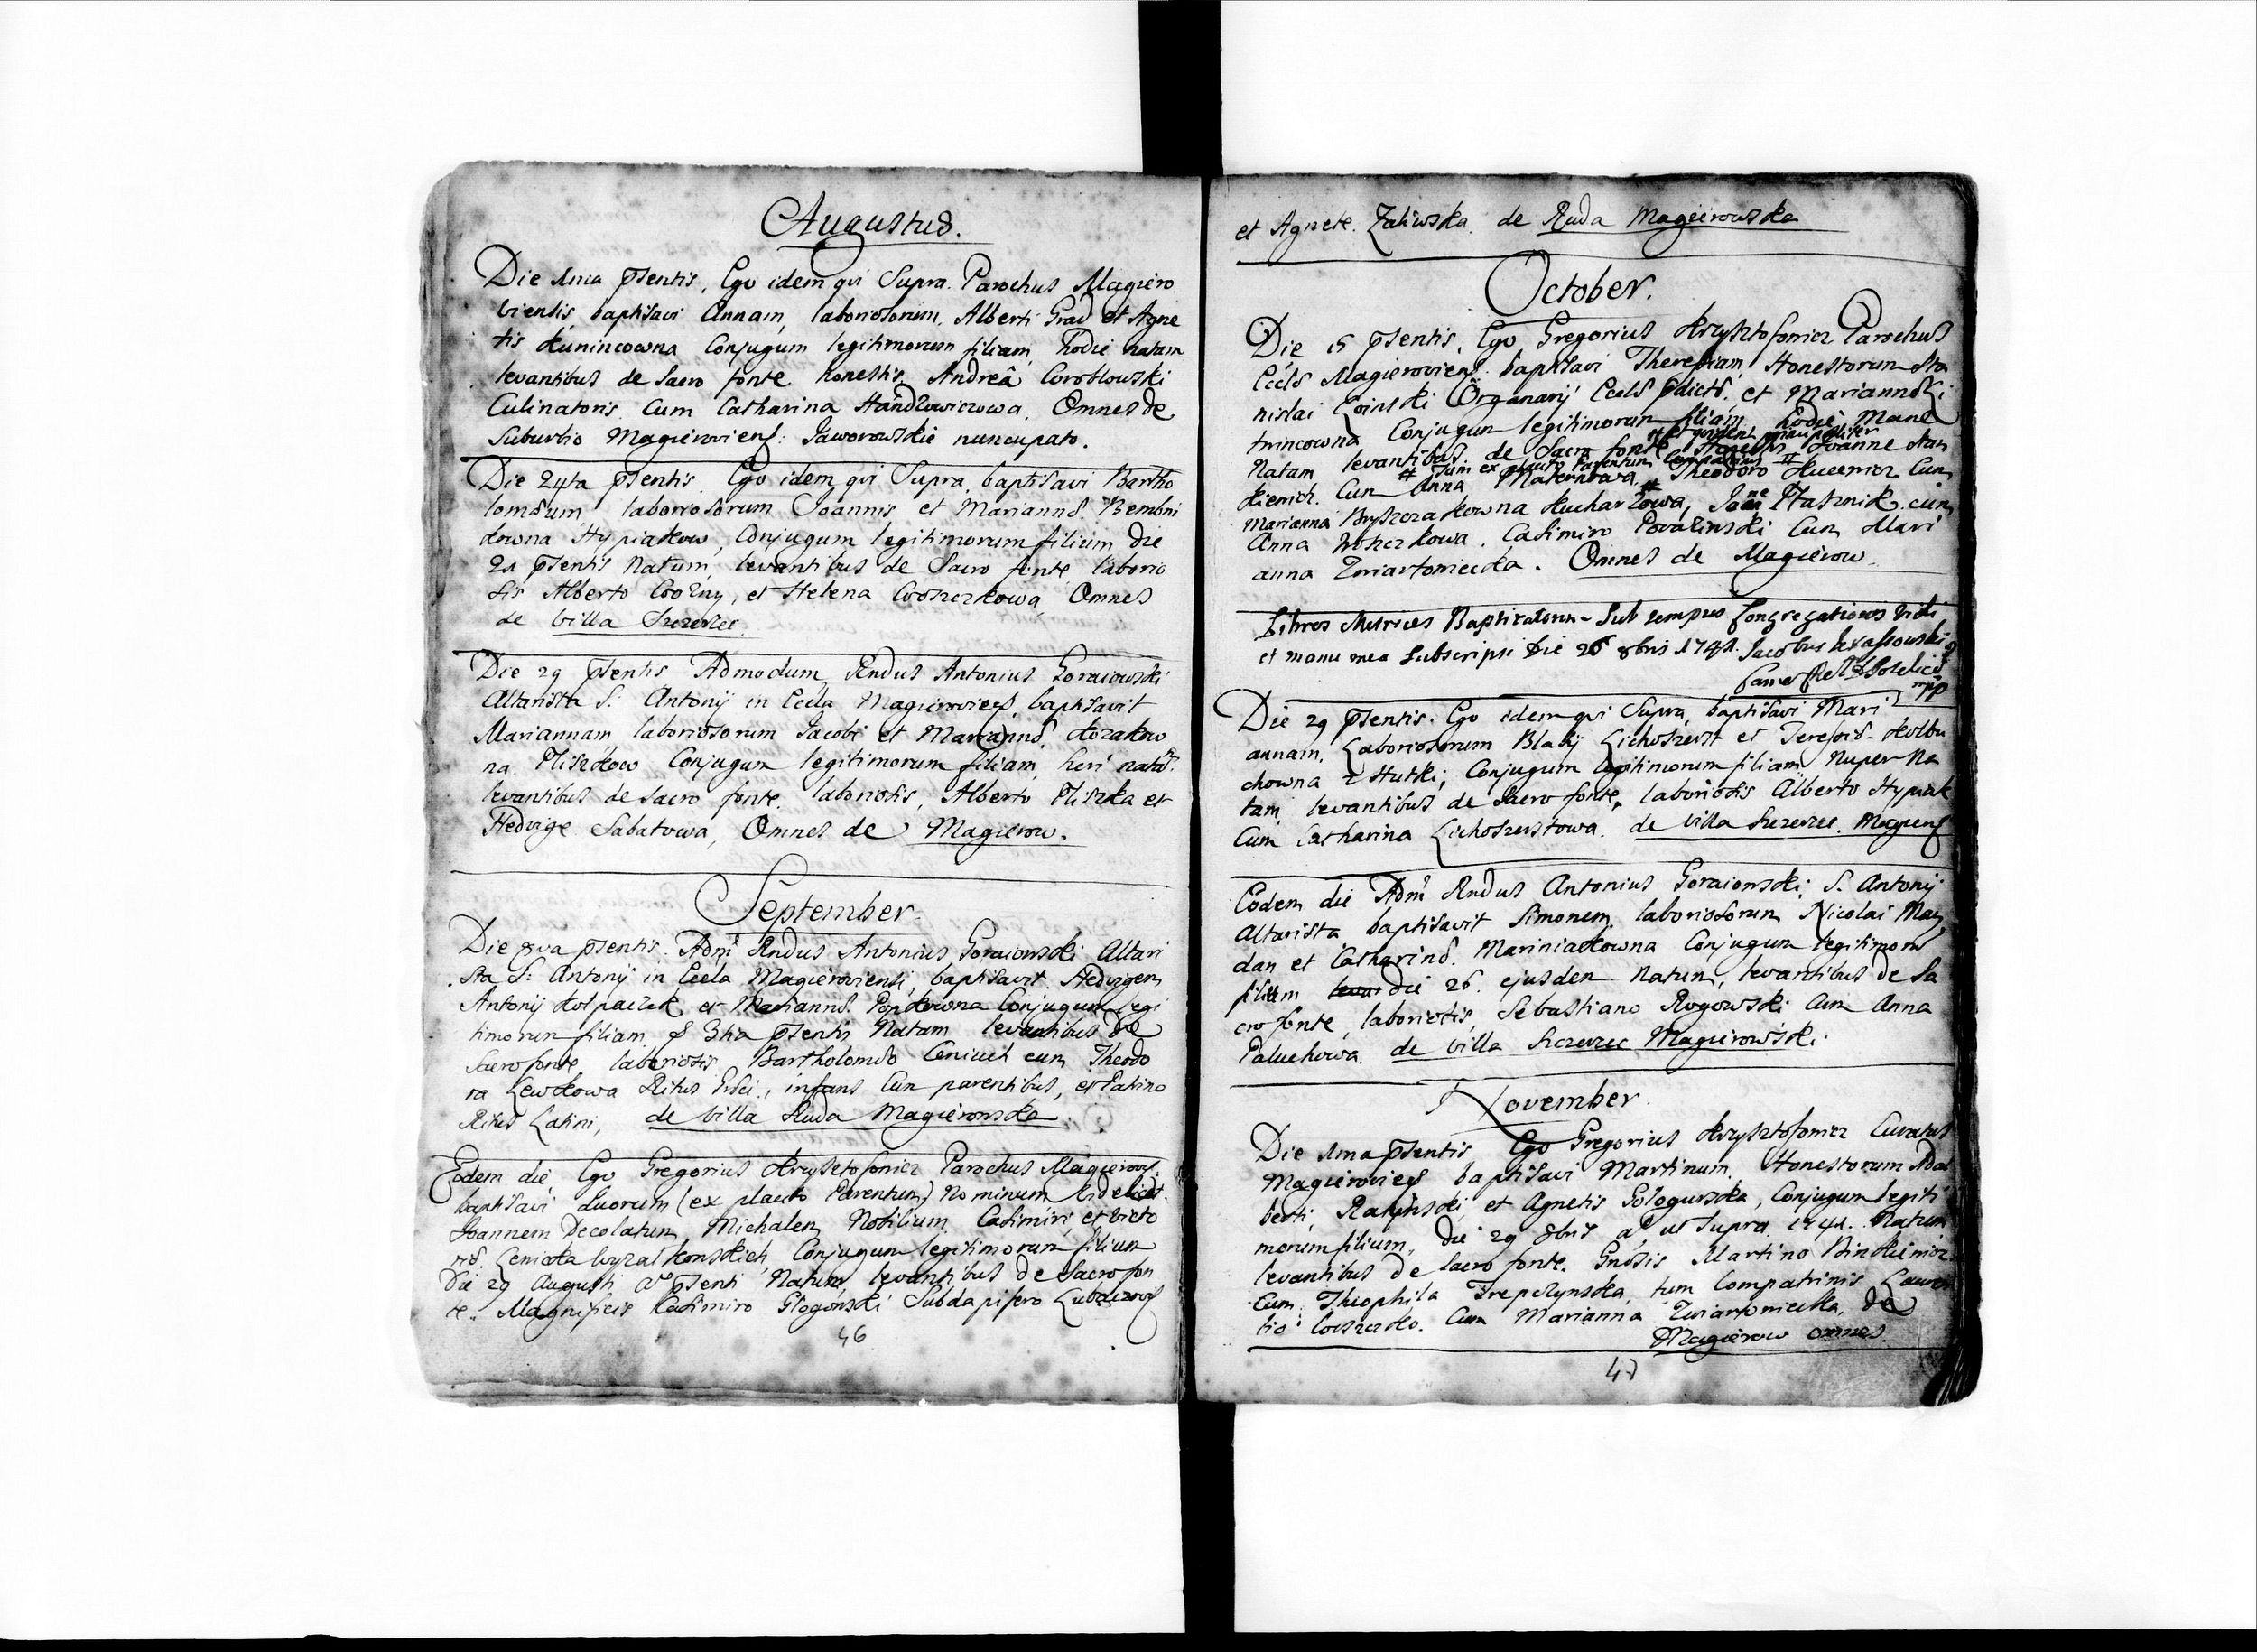 Augustus.
Die 1ma psentis, Ego idem qvi Supra Parochus Magiero
viensis, baptisavi Annam, laboriosorum, Alberti Grad et Agne
tis Kunincowna Conjugum legitimorum filiam, hodie natam
levantibus de Sacro fonte honestis, Andreâ Wroblowski
Culinatoris Cum Catharina Handlowiczowa, Omnes de
Suburbio Magieroviens: Jaworowskie nuncupato.
Die 24ta psentis Ego idem qvi Supra, baptisavi Bartho
lomæum, laboriosorum Joannis et Mariannæ Bembni
kowna Hypiakow, Conjugum legitimorum filium die
21 psentis Natum, levantibus de Sacro fonte laborio
sis Alberto Woźny, et Helena Woszczkowa, Omnes
de Villa Szczerzec
Die 29 psentis Admodum Rndus Antonius Goraiowski
Altarista S: Antonij in Eccla Magieroviens, baptisavit
Mariannam laboriosorum Jacobi et Mariannæ Kozakow
na Pliszkow Conjugum legitimorum filiam, heri natam
levantibus de Sacro fonte laboriosis, Alberto Pliszka et
Hedvige Sabatowa, Omnes de Magierow.
September
Die 8va psentis Adm Rndus Antonius Goraiowski Altari
sta S: Antonij in Eccla Magieroviensi, baptisavit Hedvigem
Antonij Kołpaczek et Mariannæ Popkowna Conjugum legi
timorum filiam, 3tia psentis Natam levantibus de
Sacro fonte laboriosis Bartholomæo Ceniuch cum Theodo
ra Lewkowa Ritus Græci, infans Cum parentibus, et Patrino
Ritus Latini, de Villa Ruda Magierowska
Eodem die, Ego Gregorius Krzysztofowicz Parochus Magierovs
baptisavi duorum (ex placito Parentum) Nominum Videlicet
Joannem Decolatum Michalem Nobilium Casimiri, et Victo
riæ Conjugum legitimorum filium
die 29 Augusti ao psenti Natum, levantibus de Sacro fon
te. Magnificis Casimiro Głogowski Subdapifero
46
et Agnete Zaliwska de Ruda Magierowska
October.
Die 15 psentis, Ego Gregorius Krzysztofowicz Parochus
Eccls Magierowiens. baptisavi Theresiam, Honestorum Sta
nislai Organarij Eccls Pdictæ et Mariannæ
Conjugum legitimorum filiam hodie mane
Natam levantibus de Sacro fonte Joanne
# Tum ex placito Parentum Compatrinis #
Cum Anna Theodoro Cum
Marianna Kucharzowa, Joane Ptasznik cum
Anna Woszczkowa, Casimiro Powalinski Cum Mari
anna Zwiartowiecka. Omnes de Magierow
Libros Metrices Baptizatorum Sub tempus Congregationis Vidi
et manu mea Subscripsi Die 26 8bris 1741. Jacobus
mpp
Die 29 psentis. Ego idem qvi Supra, baptisavi Mari
annam, Laboriosorum Blasij Lichoszerst et Teresiæ
chowna z Hutki, Conjugum legitimorum filiam Nuper Na
tam, levantibus de Sacro fonte, laboriosis Alberto Hypiak
Cum Catharina Lichoszerstowa. de Villa Szczerzec Magiers
Eodem die Adm Rndus Antonius Goraiowski S. Antonij
Altarista baptisavit Simonem laboriosorum Nicolai May
dan et Catharinæ Mariniakowna Conjugum legitimorum
filium die 26. ejusdem Natum, levantibus de Sa
cro fonte, laboriosis, Sebastiano Rogowski Cum Anna
Paluchowa. de Villa Szczerzec Magierowski.
November.
Die 1ma psentis Ego Gregorius Krzysztofowicz Curatus
Magieroviens baptisavi Martinum, Honestorum Adal
berti, Ratynski et Agnetis Gologurska, Conjugum legiti
morum filium, die 29 8bris ao ut Supra 1741. Natum
levantibus de Sacro fonte. Gnosis Martino
Cum Theophila tum Compatrinis Lauren
tio Woszczko. Cum Marianna Zwiartowiecka, de
Magierow omnes.
47